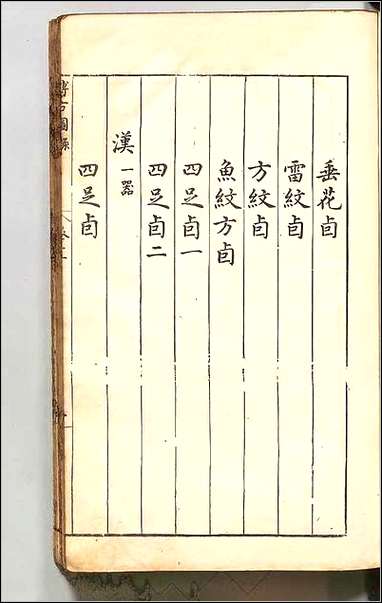 垂花卣
雷紋卣
方紋卣
魚紋方卣
四足卣一
四足卣二
漢一器
四足卣
博古圖錄